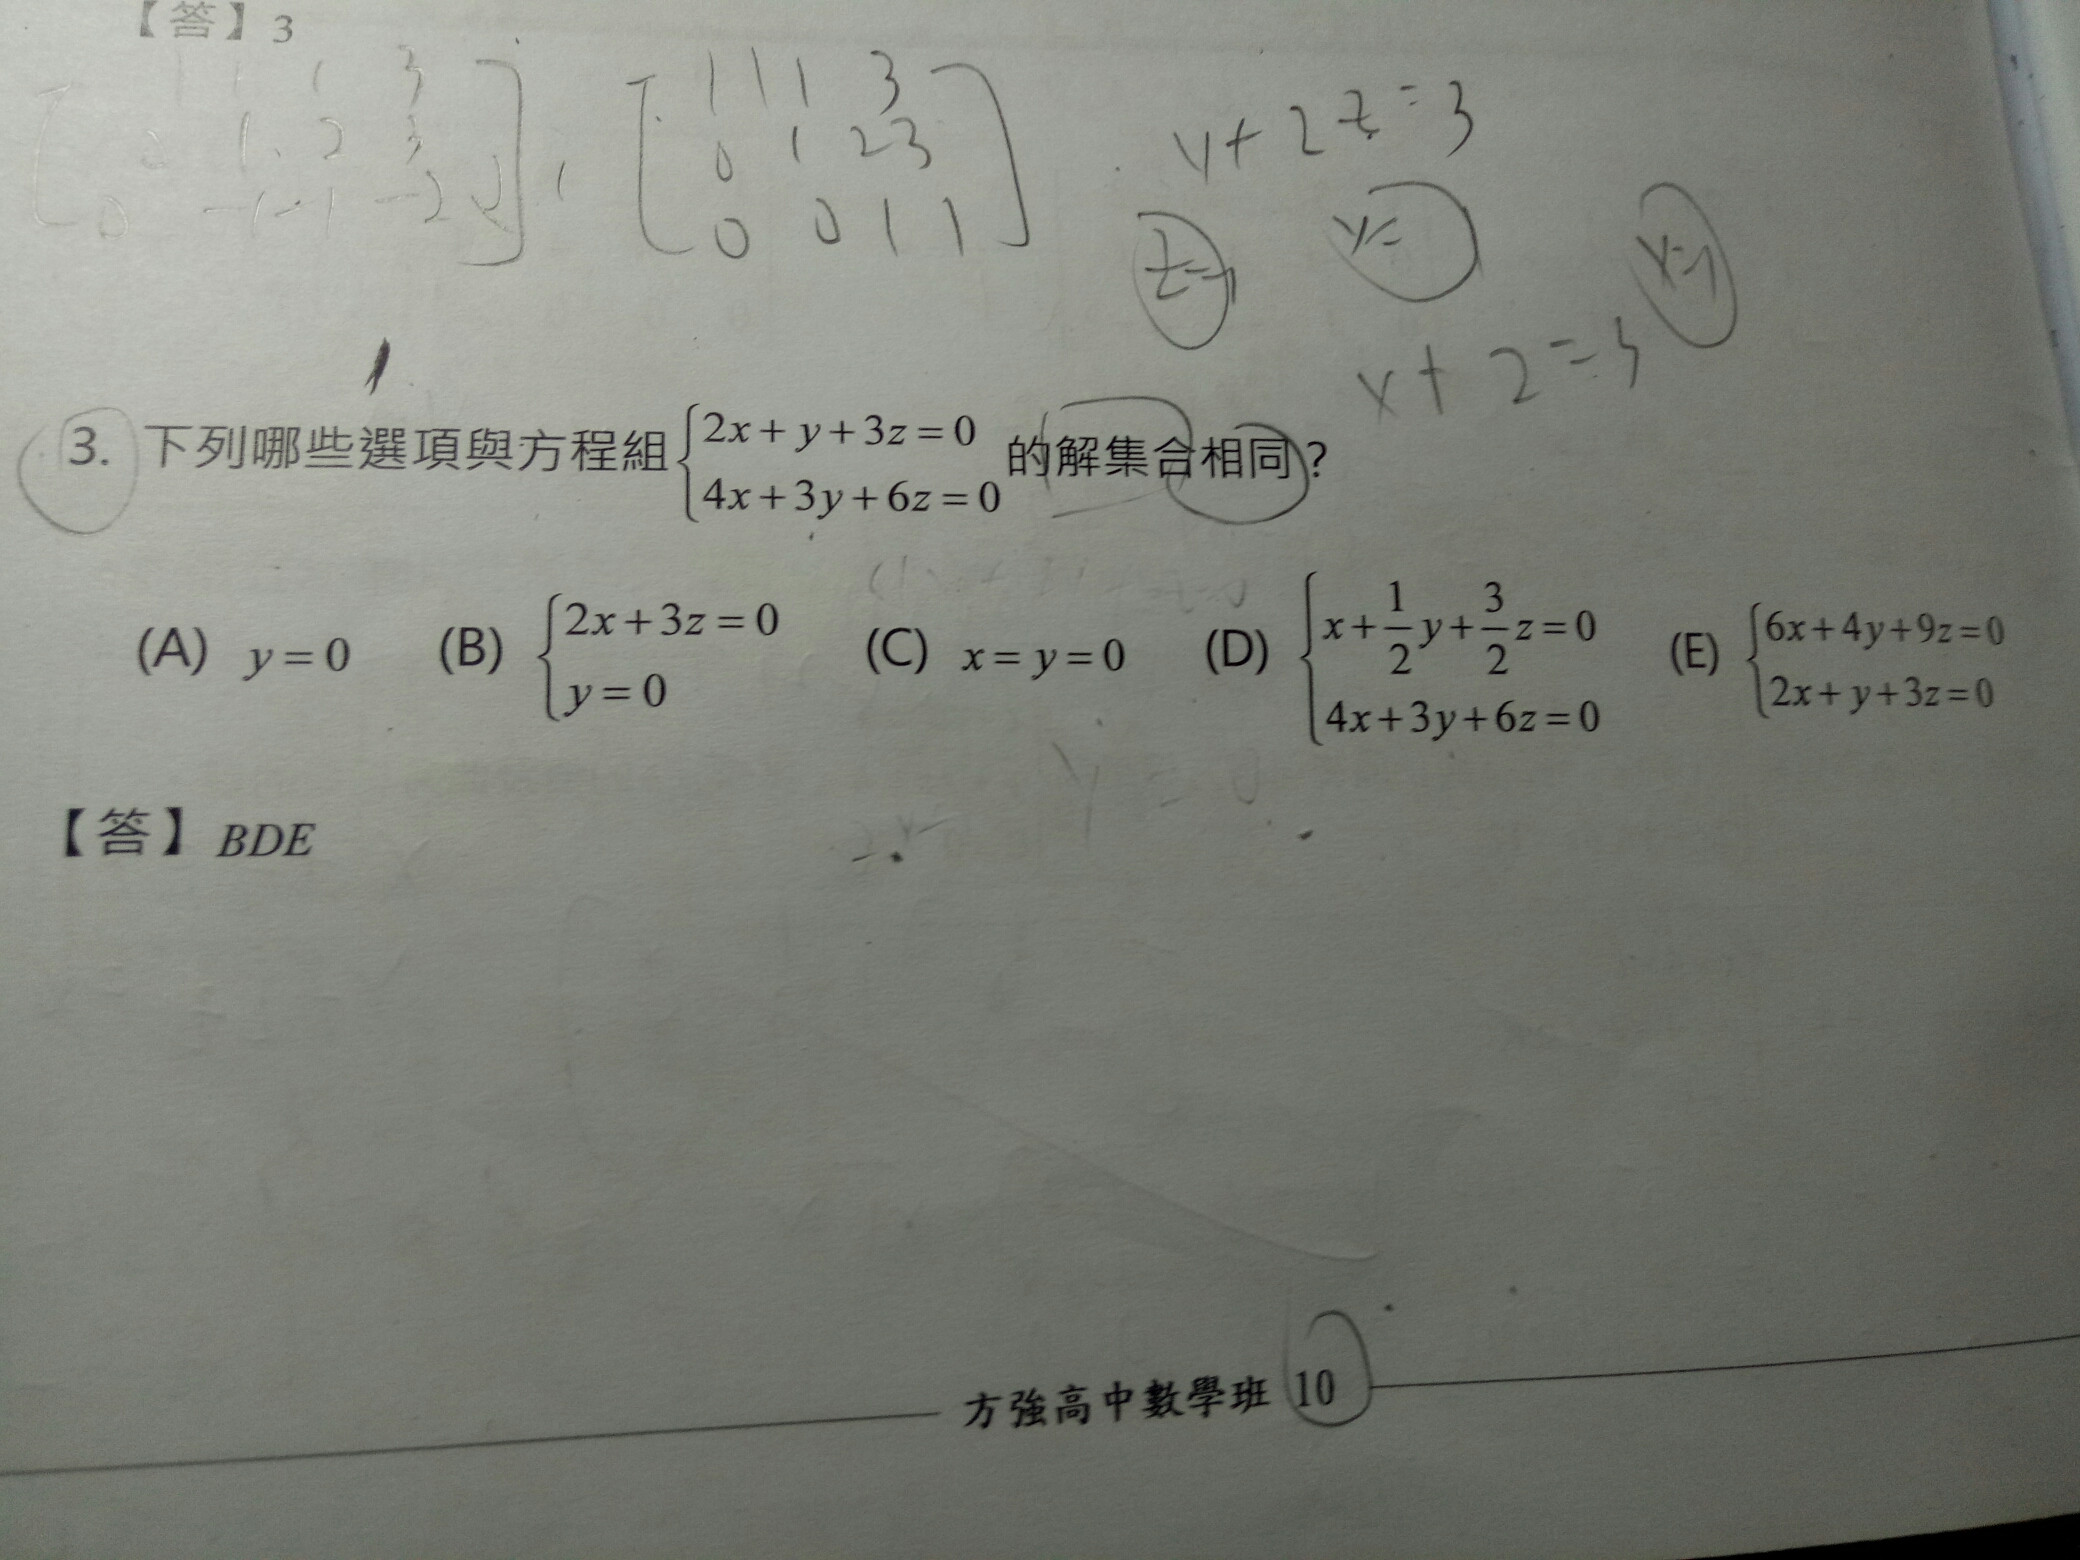 【答】3
1 1 1 3
0 1 2 3
0 -1 -1 -2
1 1 1 3
0 1 2 3
0 0 1 1
y+2z=3
z=1
y=
x=1
x+2=3
3. 下列哪些選項與方程組{2x+y+3z=0
4x+3y+6z=0 的解集合相同?
(A) y=0 (B) {2x+3z=0
y=0
(C) x=y=0 (D) {x+1/2y+3/2z=0
4x+3y+6z=0
(E) {6x+4y+9z=0
2x+y+3z=0
y=0
【答】BDE
方強高中數學班 10